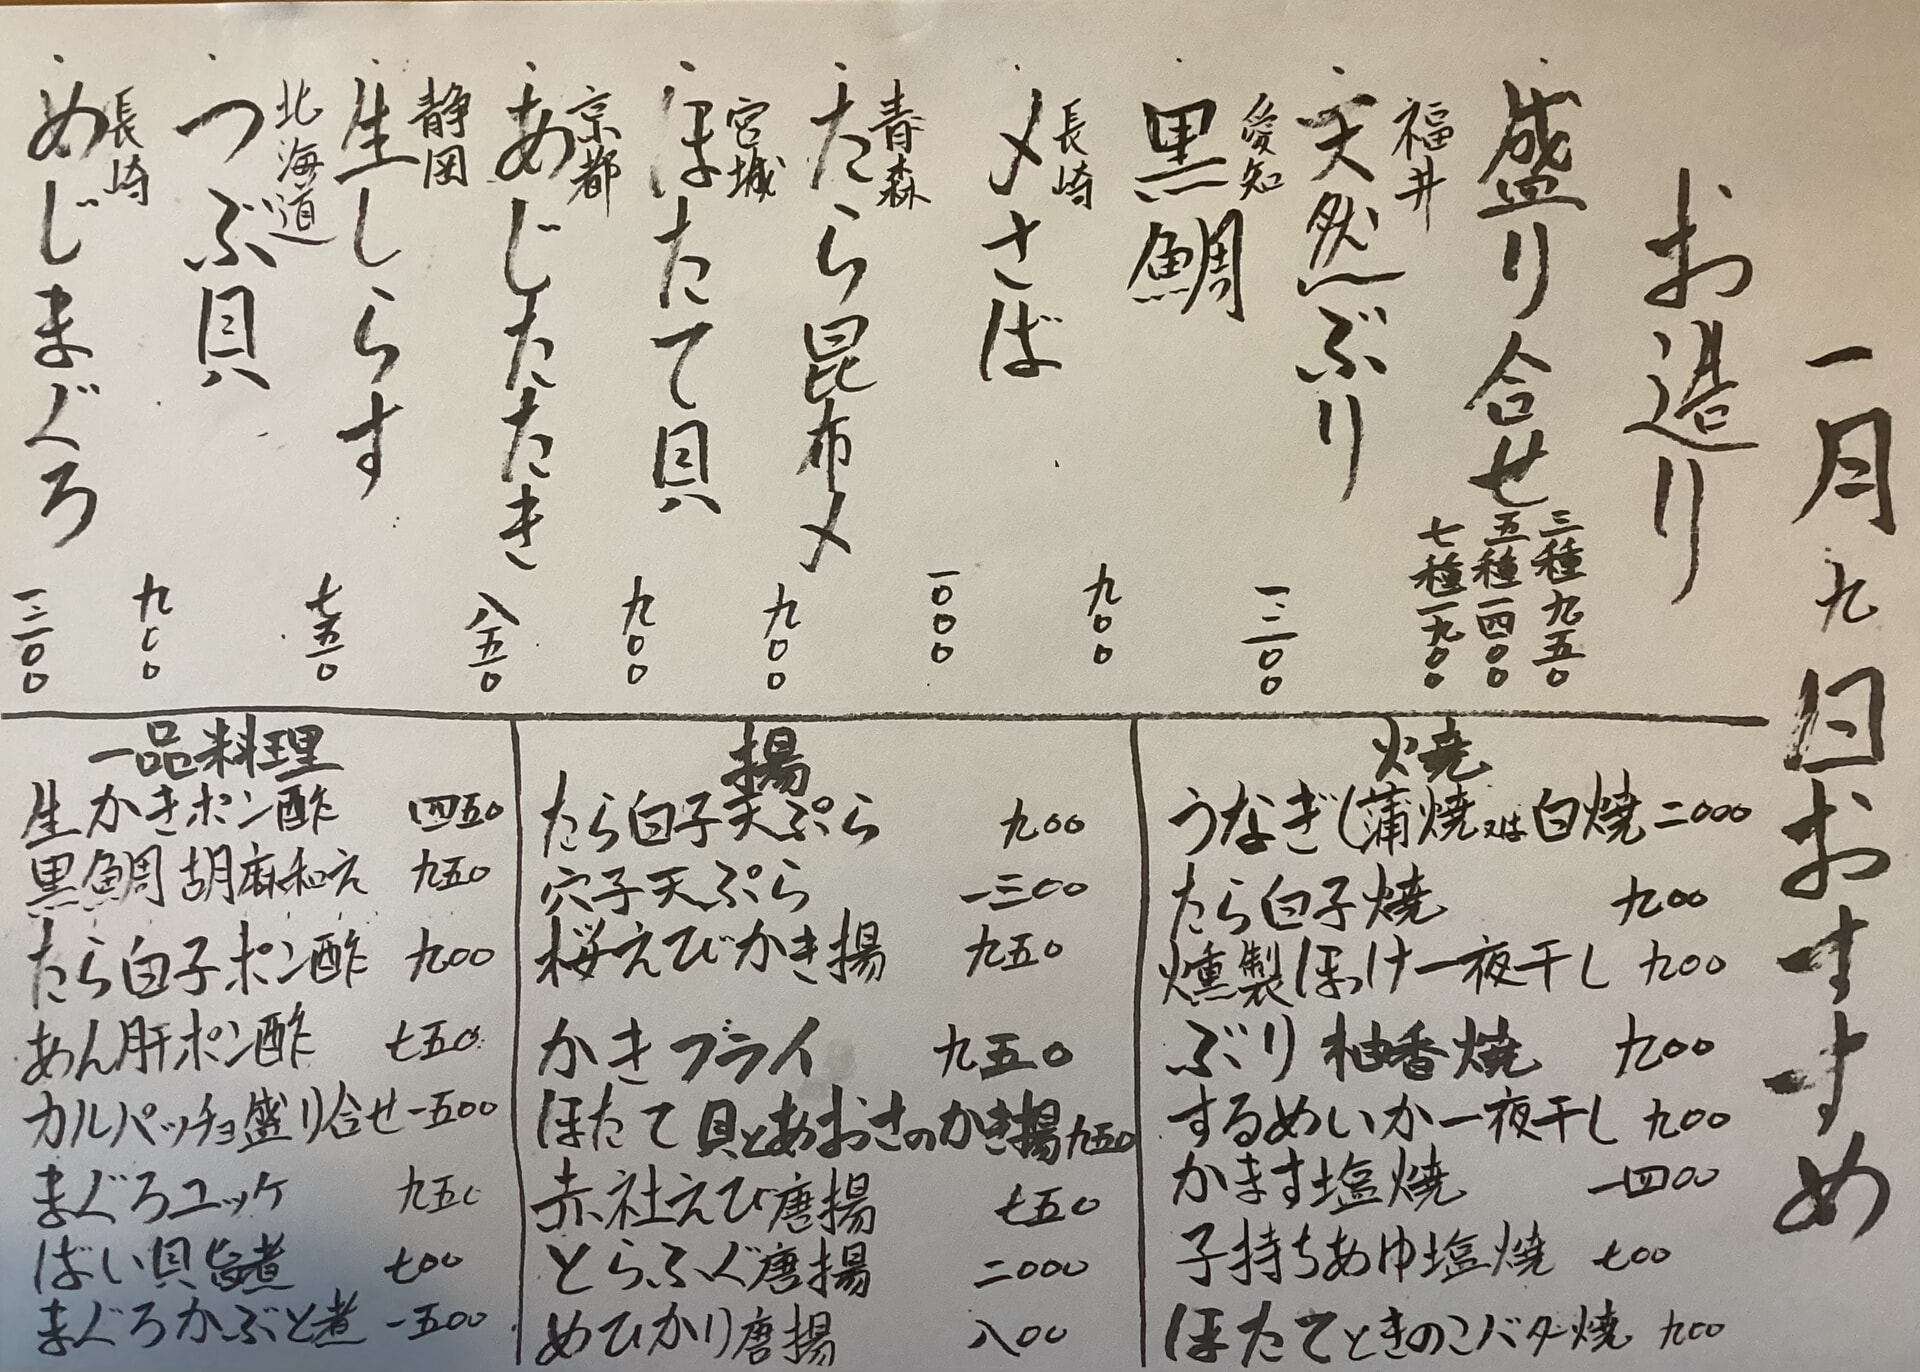 一月九日おすすめ
お造り
盛り合せ
三種九五〇
五種一四〇〇
七種一九〇〇
福井
天然ぶり 一三〇〇
愛知
黒鯛 九〇〇
長崎
〆さば 一〇〇〇
青森
たら昆布〆 九〇〇
宮城
ほたて貝 九〇〇
京都
あじたたき 八五〇
静岡
生しらす 七五〇
北海道
つぶ貝 九〇〇
長崎
めじまぐろ 一三〇〇
焼
うなぎ(蒲焼又は白焼 二〇〇〇
たら白子焼 九〇〇
燻製ほっけ一夜干し 九〇〇
ぶり柚香焼 九〇〇
するめいか一夜干し 九〇〇
かます塩焼 一四〇〇
子持ちあゆ塩焼 七〇〇
ほたてときのこバター焼 九〇〇
揚
たら白子天ぷら 九〇〇
穴子天ぷら 一三〇〇
桜えびかき揚 九五〇
かきフライ 九五〇
ほたて貝とあおさのかき揚 九五〇
赤社えび唐揚 七五〇
とらふぐ唐揚 二〇〇〇
めひかり唐揚 八〇〇
一品料理
生かきポン酢 四五〇
黒鯛胡麻和え 九五〇
たら白子ポン酢 九〇〇
あん肝ポン酢 七五〇
カルパッチョ盛り合せ 一五〇〇
まぐろユッケ 九五〇
ばい貝旨煮 七〇〇
まぐろかぶと煮 一五〇〇